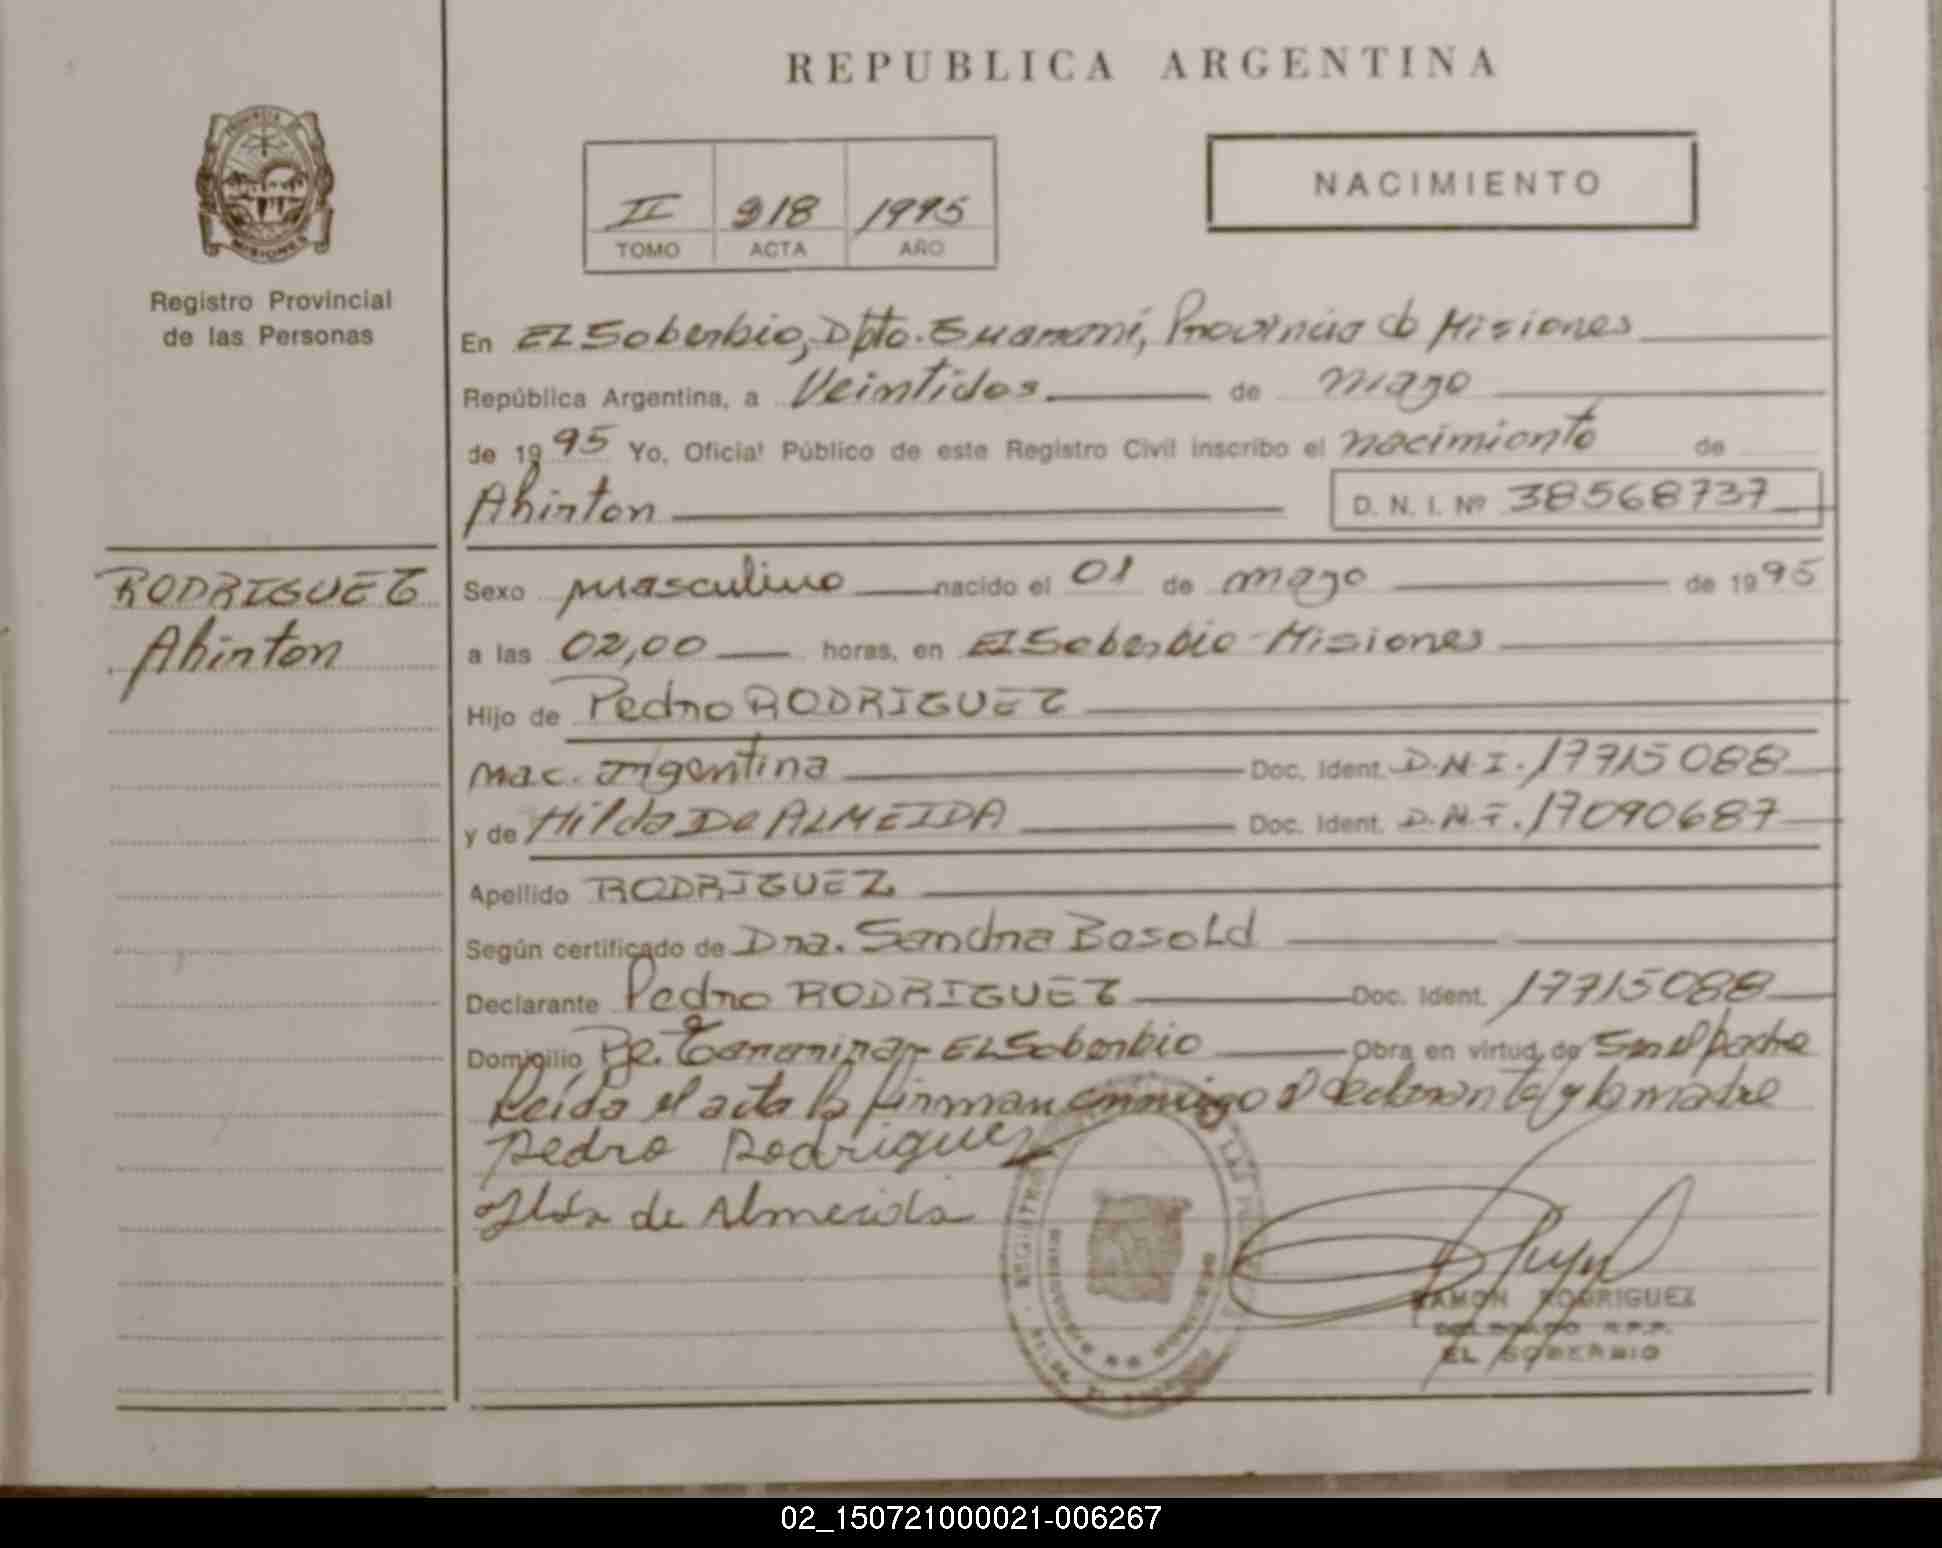 REPUBLICA ARGENTINA
PROVINCIA DE MISIONES
Registro Provincial
de las Personas
II 918 1995
TOMO ACTA AÑO
NACIMIENTO
En El Soberbio, Dpto. Guaraní, Provincia de Misiones
República Argentina, a Veintidos de mayo
de 1995 Yo, Oficial Público de este Registro Civil inscribo el nacimiento de
Ahirton D. N. I. Nº 38568737
RODRIGUEZ
Ahirton
Sexo masculino nacido el 01 de mayo de 1995
a las 02,00 horas, en El Soberbio - Misiones
Hijo de Pedro RODRIGUEZ
nac. argentina Doc. Ident. D.N.I. 17715088
y de Hilda De ALMEIDA Doc. Ident. D.N.I. 17090687
Apellido RODRIGUEZ
Según certificado de Dra. Sandra Bosold
Declarante Pedro RODRIGUEZ Doc. Ident. 17715088
Domicilio El Soberbio Obra en virtud de Ser el padre
Leída el acta la firman conmigo el declarante y la madre
Pedro Rodriguez
Ilda de Almeida
RAMON RODRIGUEZ
DELEGADO R.P.P.
EL SOBERBIO
02_150721000021-006267